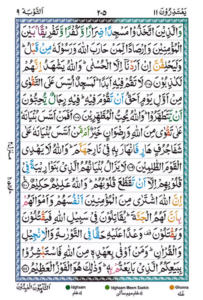 اَلتَّوْبَة ٩ ٢٠٥ يَعْتَذِرُوْنَ ١١
وَالَّذِيْنَ اتَّخَذُوْا مَسْجِدًا ضِرَارًا وَّكُفْرًا وَّتَفْرِيْقًۢا بَيْنَ
الْمُؤْمِنِيْنَ وَاِرْصَادًا لِّمَنْ حَارَبَ اللّٰهَ وَرَسُوْلَهٗ مِنْ قَبْلُ
وَلَيَحْلِفُنَّ اِنْ اَرَدْنَاۤ اِلَّا الْحُسْنٰى وَاللّٰهُ يَشْهَدُ اِنَّهُمْ
لَكٰذِبُوْنَ لَا تَقُمْ فِيْهِ اَبَدًا لَمَسْجِدٌ اُسِّسَ عَلَى التَّقْوٰى
مِنْ اَوَّلِ يَوْمٍ اَحَقُّ اَنْ تَقُوْمَ فِيْهِ فِيْهِ رِجَالٌ يُّحِبُّوْنَ
اَنْ يَّتَطَهَّرُوْا وَاللّٰهُ يُحِبُّ الْمُطَّهِّرِيْنَ اَفَمَنْ اَسَّسَ بُنْيَانَهٗ
عَلٰى تَقْوٰى مِنَ اللّٰهِ وَرِضْوَانٍ خَيْرٌ اَمْ مَّنْ اَسَّسَ بُنْيَانَهٗ عَلٰى
شَفَا جُرُفٍ هَارٍ فَانْهَارَ بِهٖ فِيْ نَارِ جَهَنَّمَ وَاللّٰهُ لَا يَهْدِى
الْقَوْمَ الظّٰلِمِيْنَ لَا يَزَالُ بُنْيَانُهُمُ الَّذِيْ بَنَوْا رِيْبَةً فِيْ
قُلُوْبِهِمْ اِلَّاۤ اَنْ تَقَطَّعَ قُلُوْبُهُمْ وَاللّٰهُ عَلِيْمٌ حَكِيْمٌ
اِنَّ اللّٰهَ اشْتَرٰى مِنَ الْمُؤْمِنِيْنَ اَنْفُسَهُمْ وَاَمْوَالَهُمْ
بِاَنَّ لَهُمُ الْجَنَّةَ يُقَاتِلُوْنَ فِيْ سَبِيْلِ اللّٰهِ فَيَقْتُلُوْنَ
وَيُقْتَلُوْنَ وَعْدًا عَلَيْهِ حَقًّا فِي التَّوْرٰىةِ وَالْاِنْجِيْلِ
وَالْقُرْاٰنِ وَمَنْ اَوْفٰى بِعَهْدِهٖ مِنَ اللّٰهِ فَاسْتَبْشِرُوْا
بِبَيْعِكُمُ الَّذِيْ بَايَعْتُمْ بِهٖ وَذٰلِكَ هُوَ الْفَوْزُ الْعَظِيْمُ
Idgham Idgham Meem Saakin Ghunna